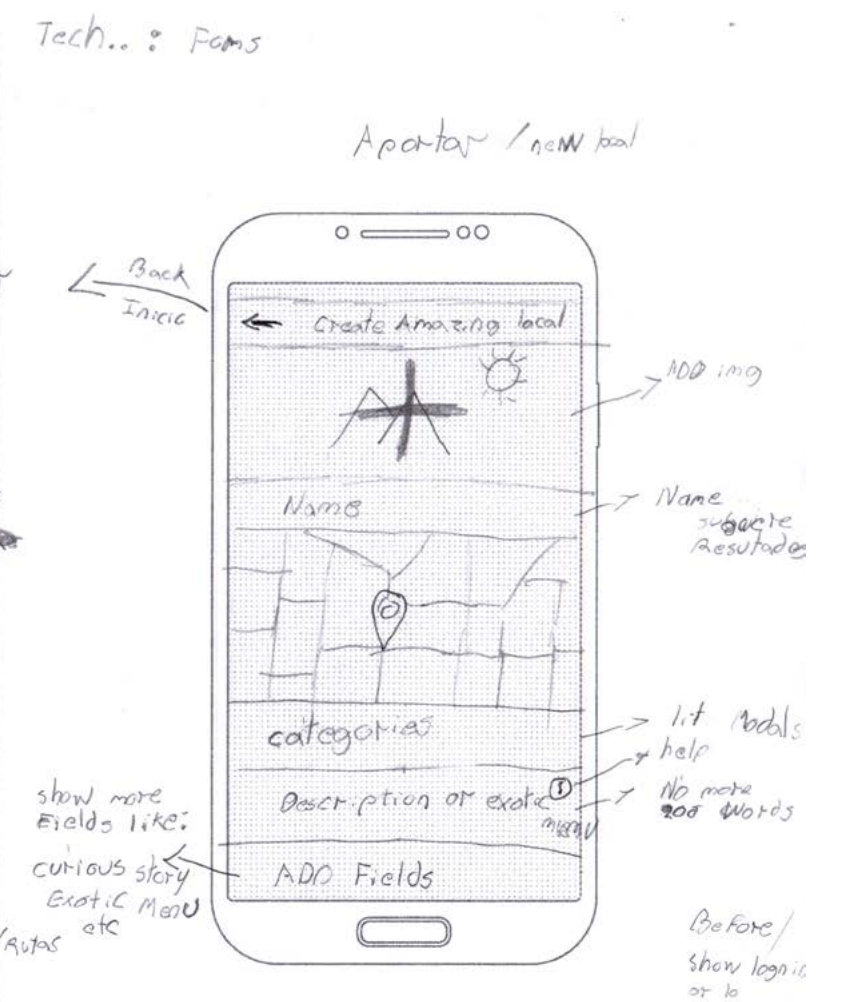 Tech.. : Foms
Aportar / new local
Back
Inicio
← Create Amazing local
ADD img
Name
Name
Resutados
categories
list Modals
help
Description or exotic
menu
No more
200 Words
show more
Fields like:
curious story
Exotic Menu
etc
/Rutas
ADD Fields
Before/
show login
or lo